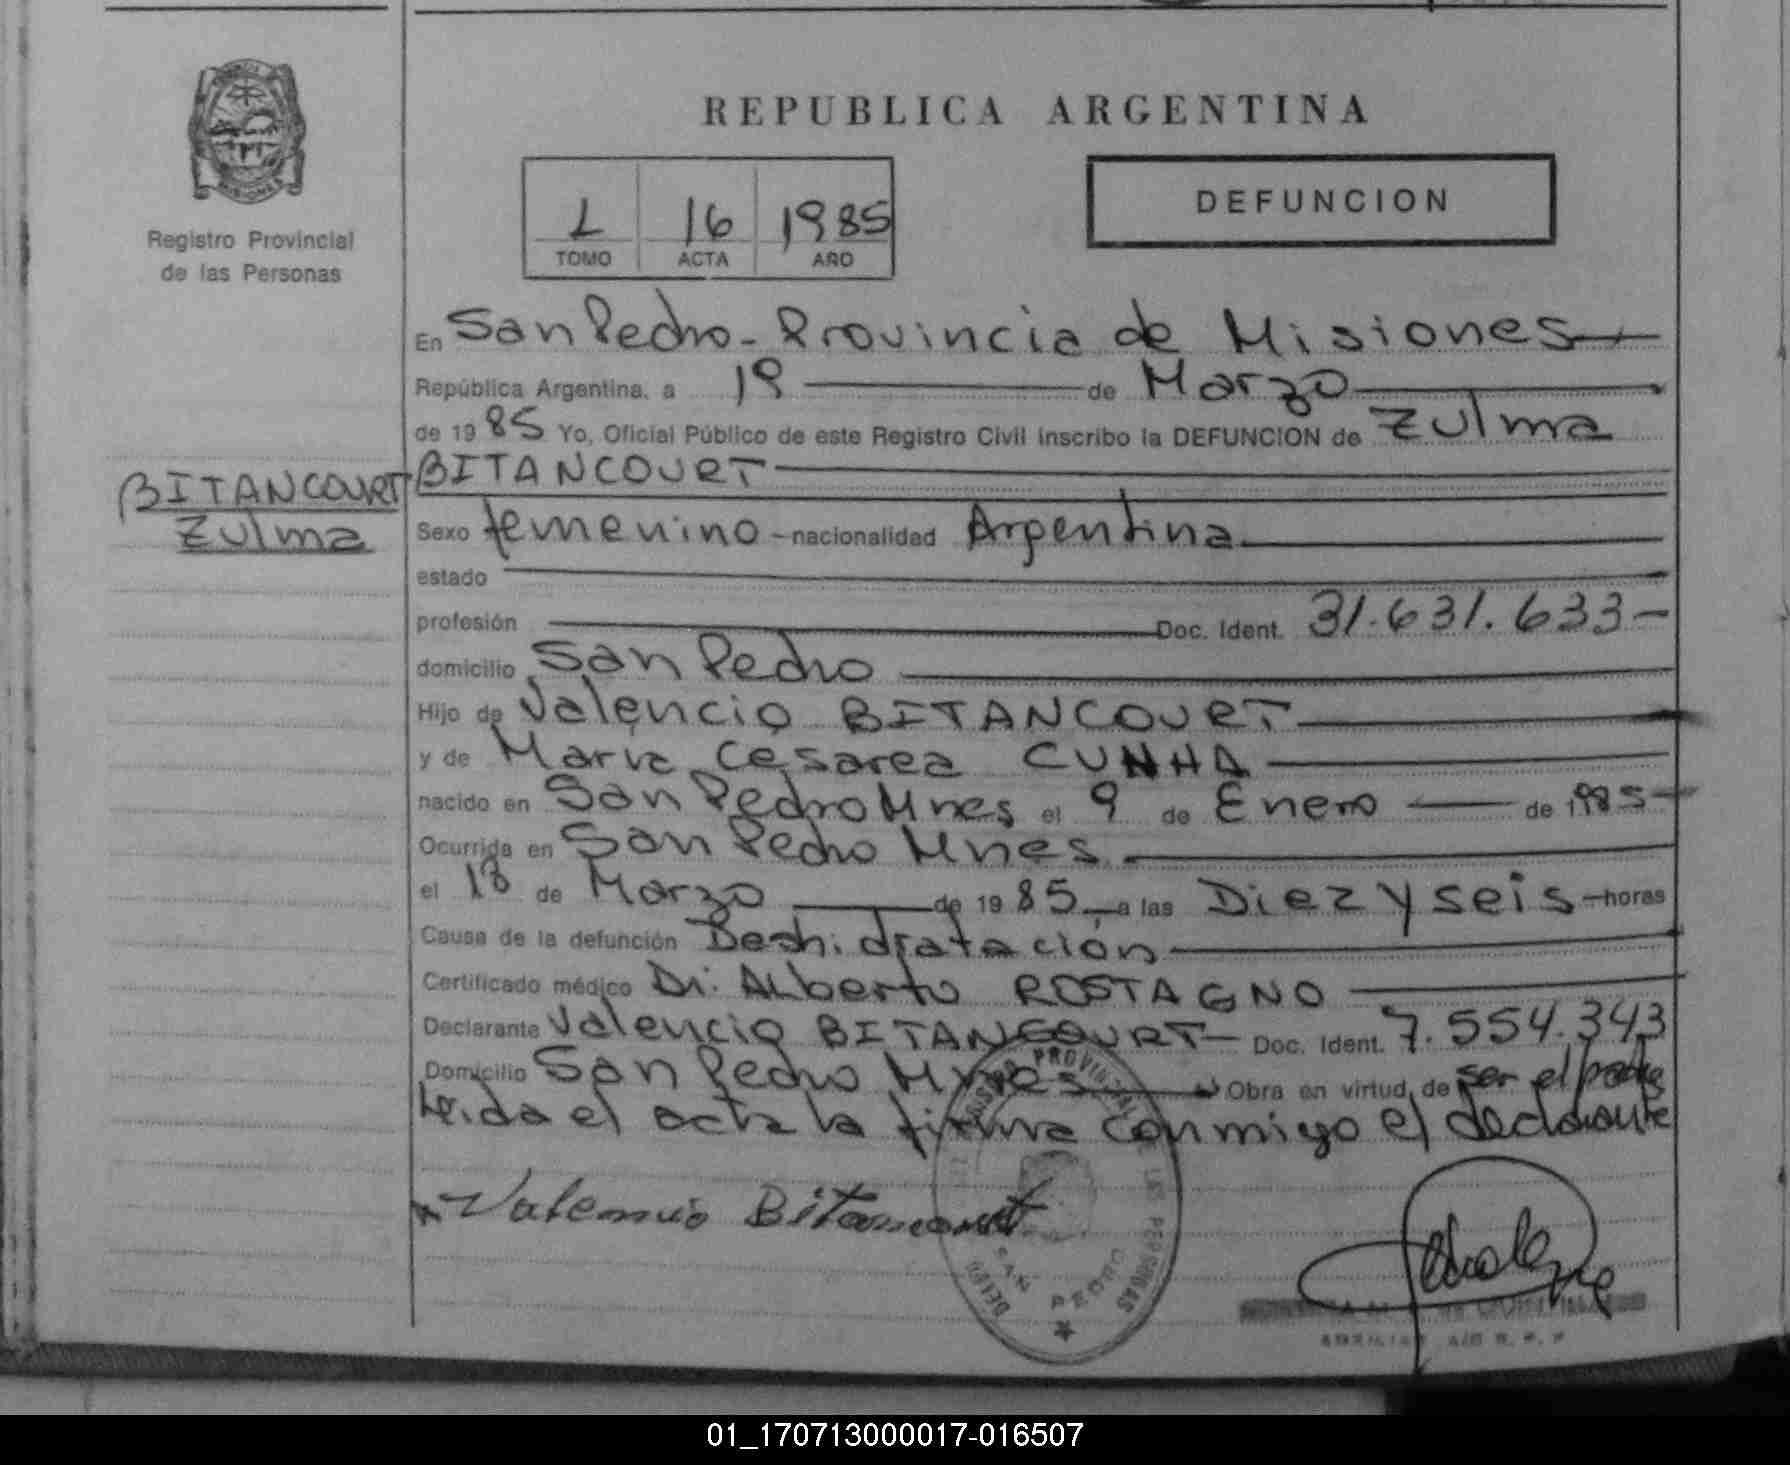 REPUBLICA ARGENTINA
MISIONES
Registro Provincial
de las Personas
L 16 1985
TOMO ACTA AÑO
DEFUNCION
En San Pedro - Provincia de Misiones
República Argentina, a 19 de Marzo
de 1985 Yo, Oficial Público de este Registro Civil inscribo la DEFUNCION de Zulma
BITANCOURT
BITANCOURT
Zulma
Sexo femenino - nacionalidad Argentina
estado
profesión Doc. Ident. 31.631.633-
domicilio San Pedro
Hijo de Valencio BITANCOURT
y de María Cesarea CUNHA
nacido en San Pedro Mnes el 9 de Enero de 1985
Ocurrida en San Pedro Mnes
el 18 de Marzo de 1985 a las Diez y seis - horas
Causa de la defunción Deshidratación
Certificado médico Dr. Alberto ROSTAGNO
Declarante Valencio BITANCOURT - Doc. Ident. 7.554.343
Domicilio San Pedro Mnes Obra en virtud de ser el padre
leida el acta la firma conmigo el declarante
Valencio Bitancourt
REGISTRO PROVINCIAL DE LAS PERSONAS
SAN PEDRO
01_170713000017-016507